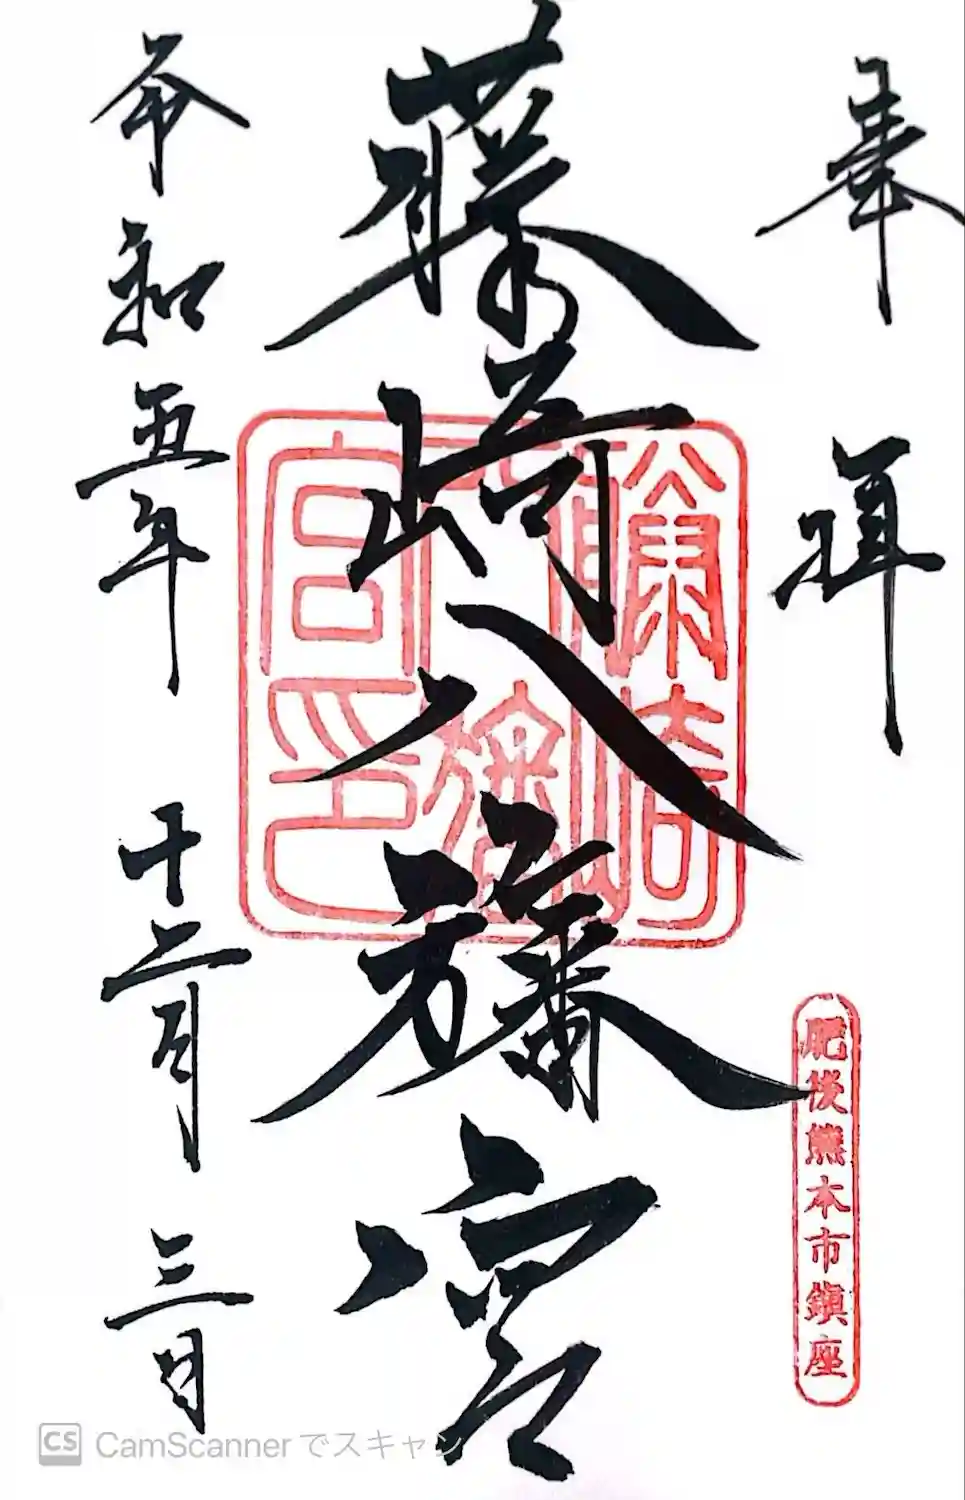 奉拝
肥後熊本市鎮座
藤崎八旛宮
藤崎八旛宮印
令和五年十二月三日
CS CamScannerでスキャン